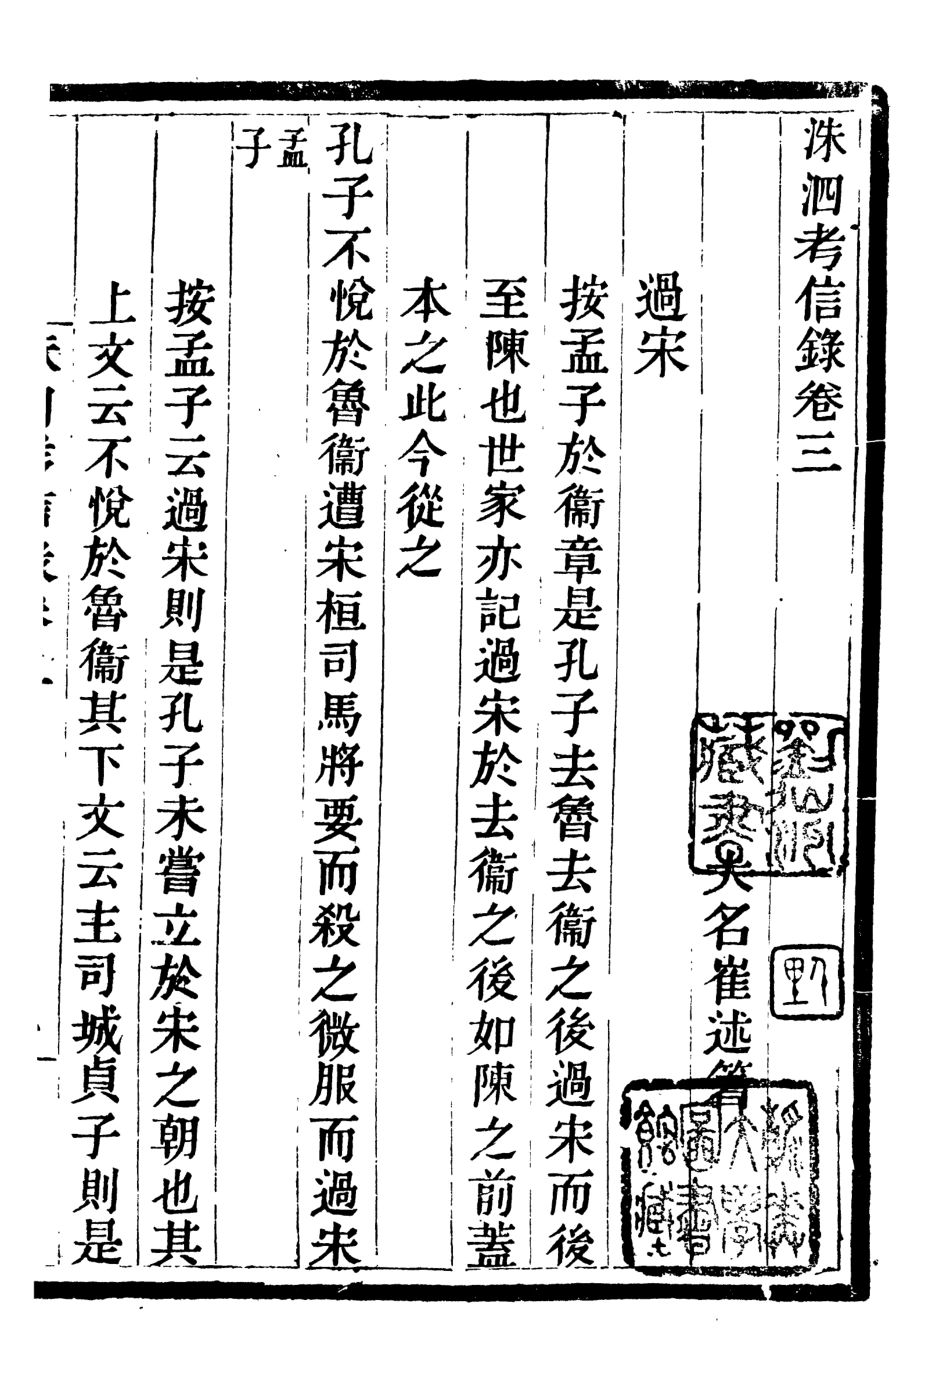 洙泗考信錄卷三
大名崔述著
過宋
按孟子於衞章是孔子去魯去衞之後過宋而後
至陳也世家亦記過宋於去衞之後如陳之前蓋
本之此今從之
孔子不悅於魯衞遭宋桓司馬將要而殺之微服而過宋
孟
子
按孟子云過宋則是孔子未嘗立於宋之朝也其
上文云不悅於魯衞其下文云主司城貞子則是